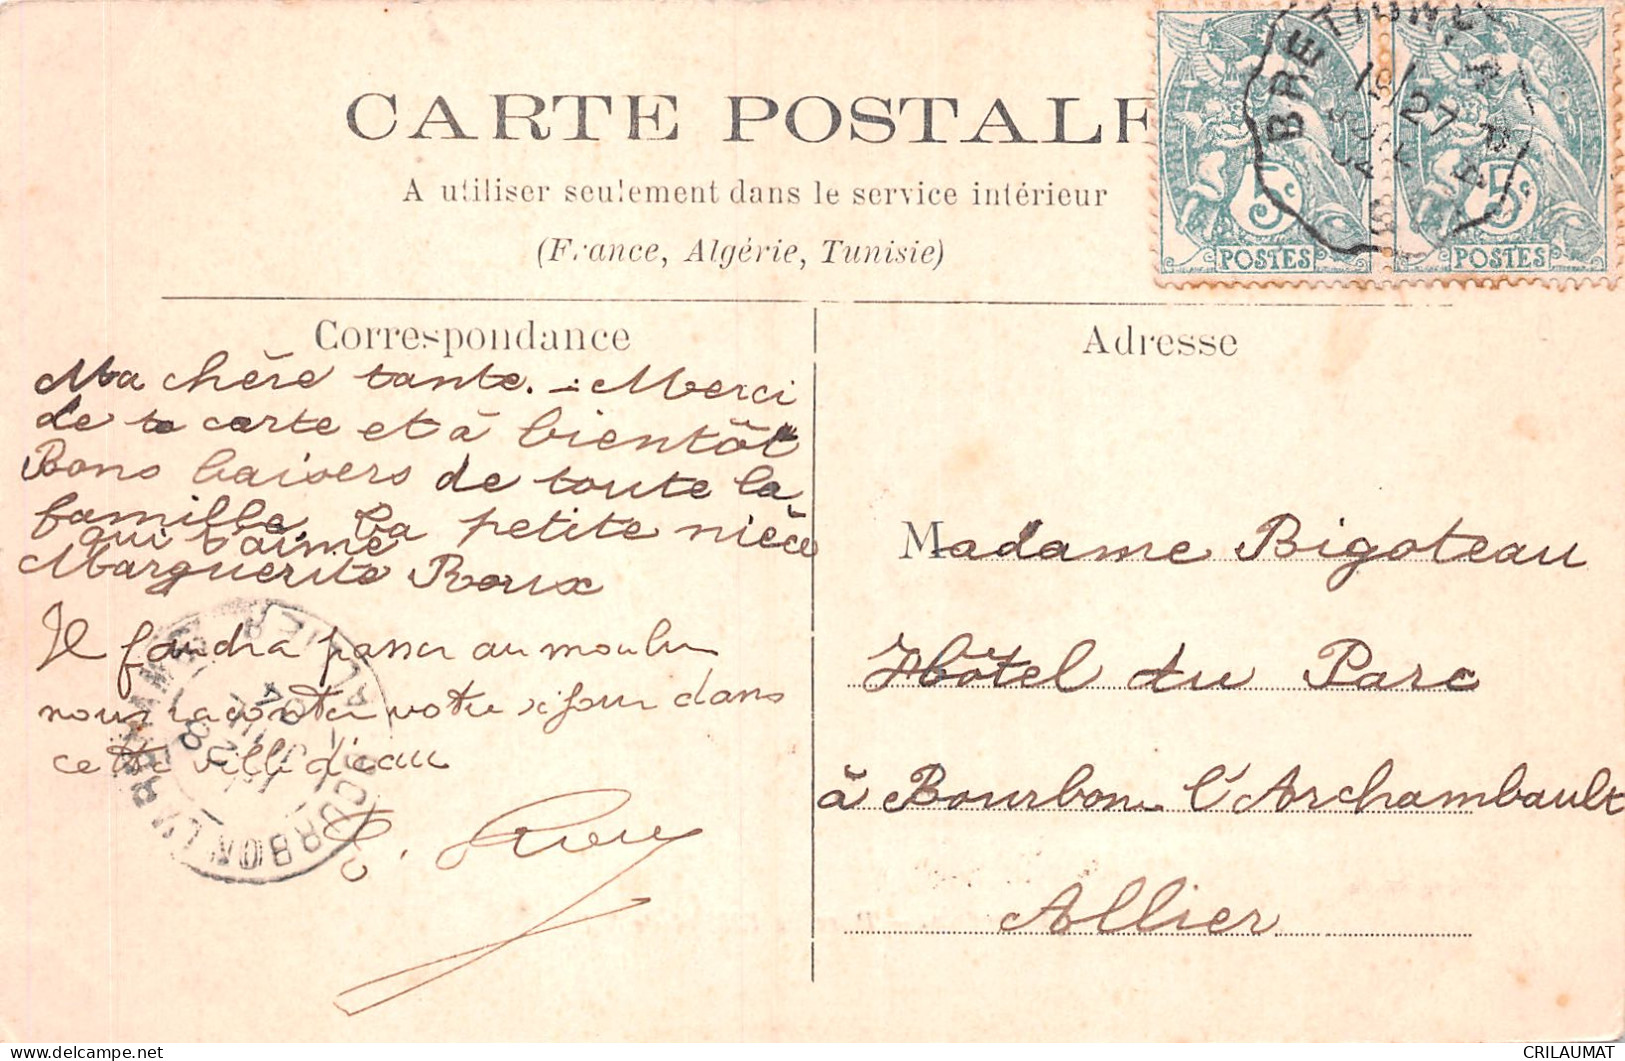 CARTE POSTALE
A utiliser seulement dans le service intérieur
(France, Algérie, Tunisie)
5c 5c
POSTES POSTES
Correspondance
Ma chère tante. - Merci
de ta carte et à bientôt
Bons baisers de toute la
famille, La petite nièce
qui t'aime
Marguerite Roux
Il faudra passer au moulin
nous raconter votre séjour dans
cette ville d'eau
C. Roux
BOURBON-L'ARCHAMBAULT
ALLIER
28
JUIL
04
Adresse
Madame Bigoteau
Hôtel du Parc
à Bourbon l'Archambault
Allier
delcampe.net
CRILAUMAT